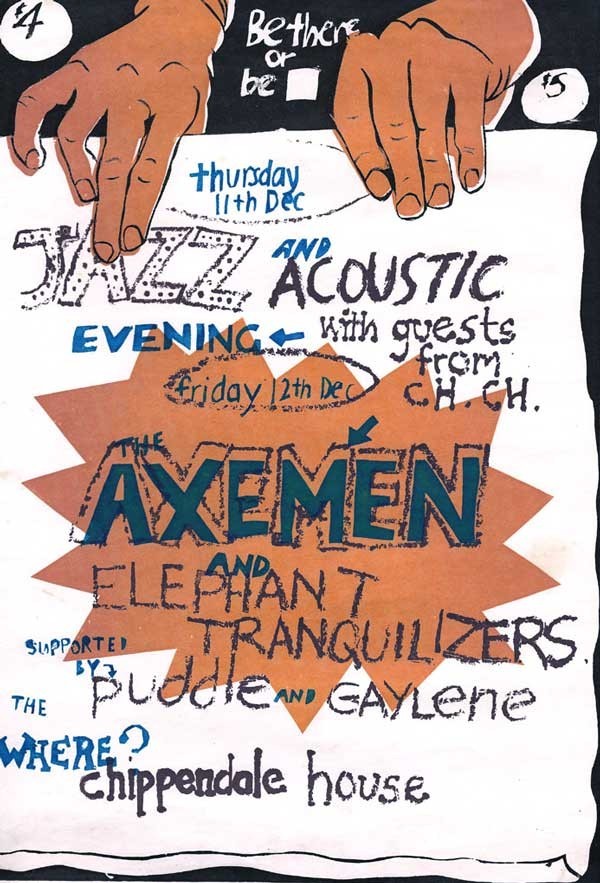 $4
Be there
or
be
$5
thursday
11th Dec
JAZZ AND
ACOUSTIC
EVENING ← with guests
from
CH. CH.
friday 12th Dec
THE
AXEMEN
AND
ELEPHANT
TRANQUILIZERS.
SUPPORTED
BY
THE puddle AND GAYLENE
WHERE?
chippendale house